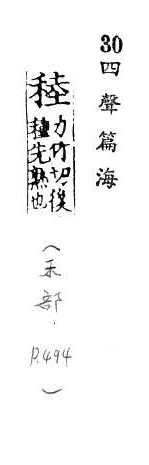 30四聲篇海
稑力竹切後
種先熟也
(禾部.
P.494)